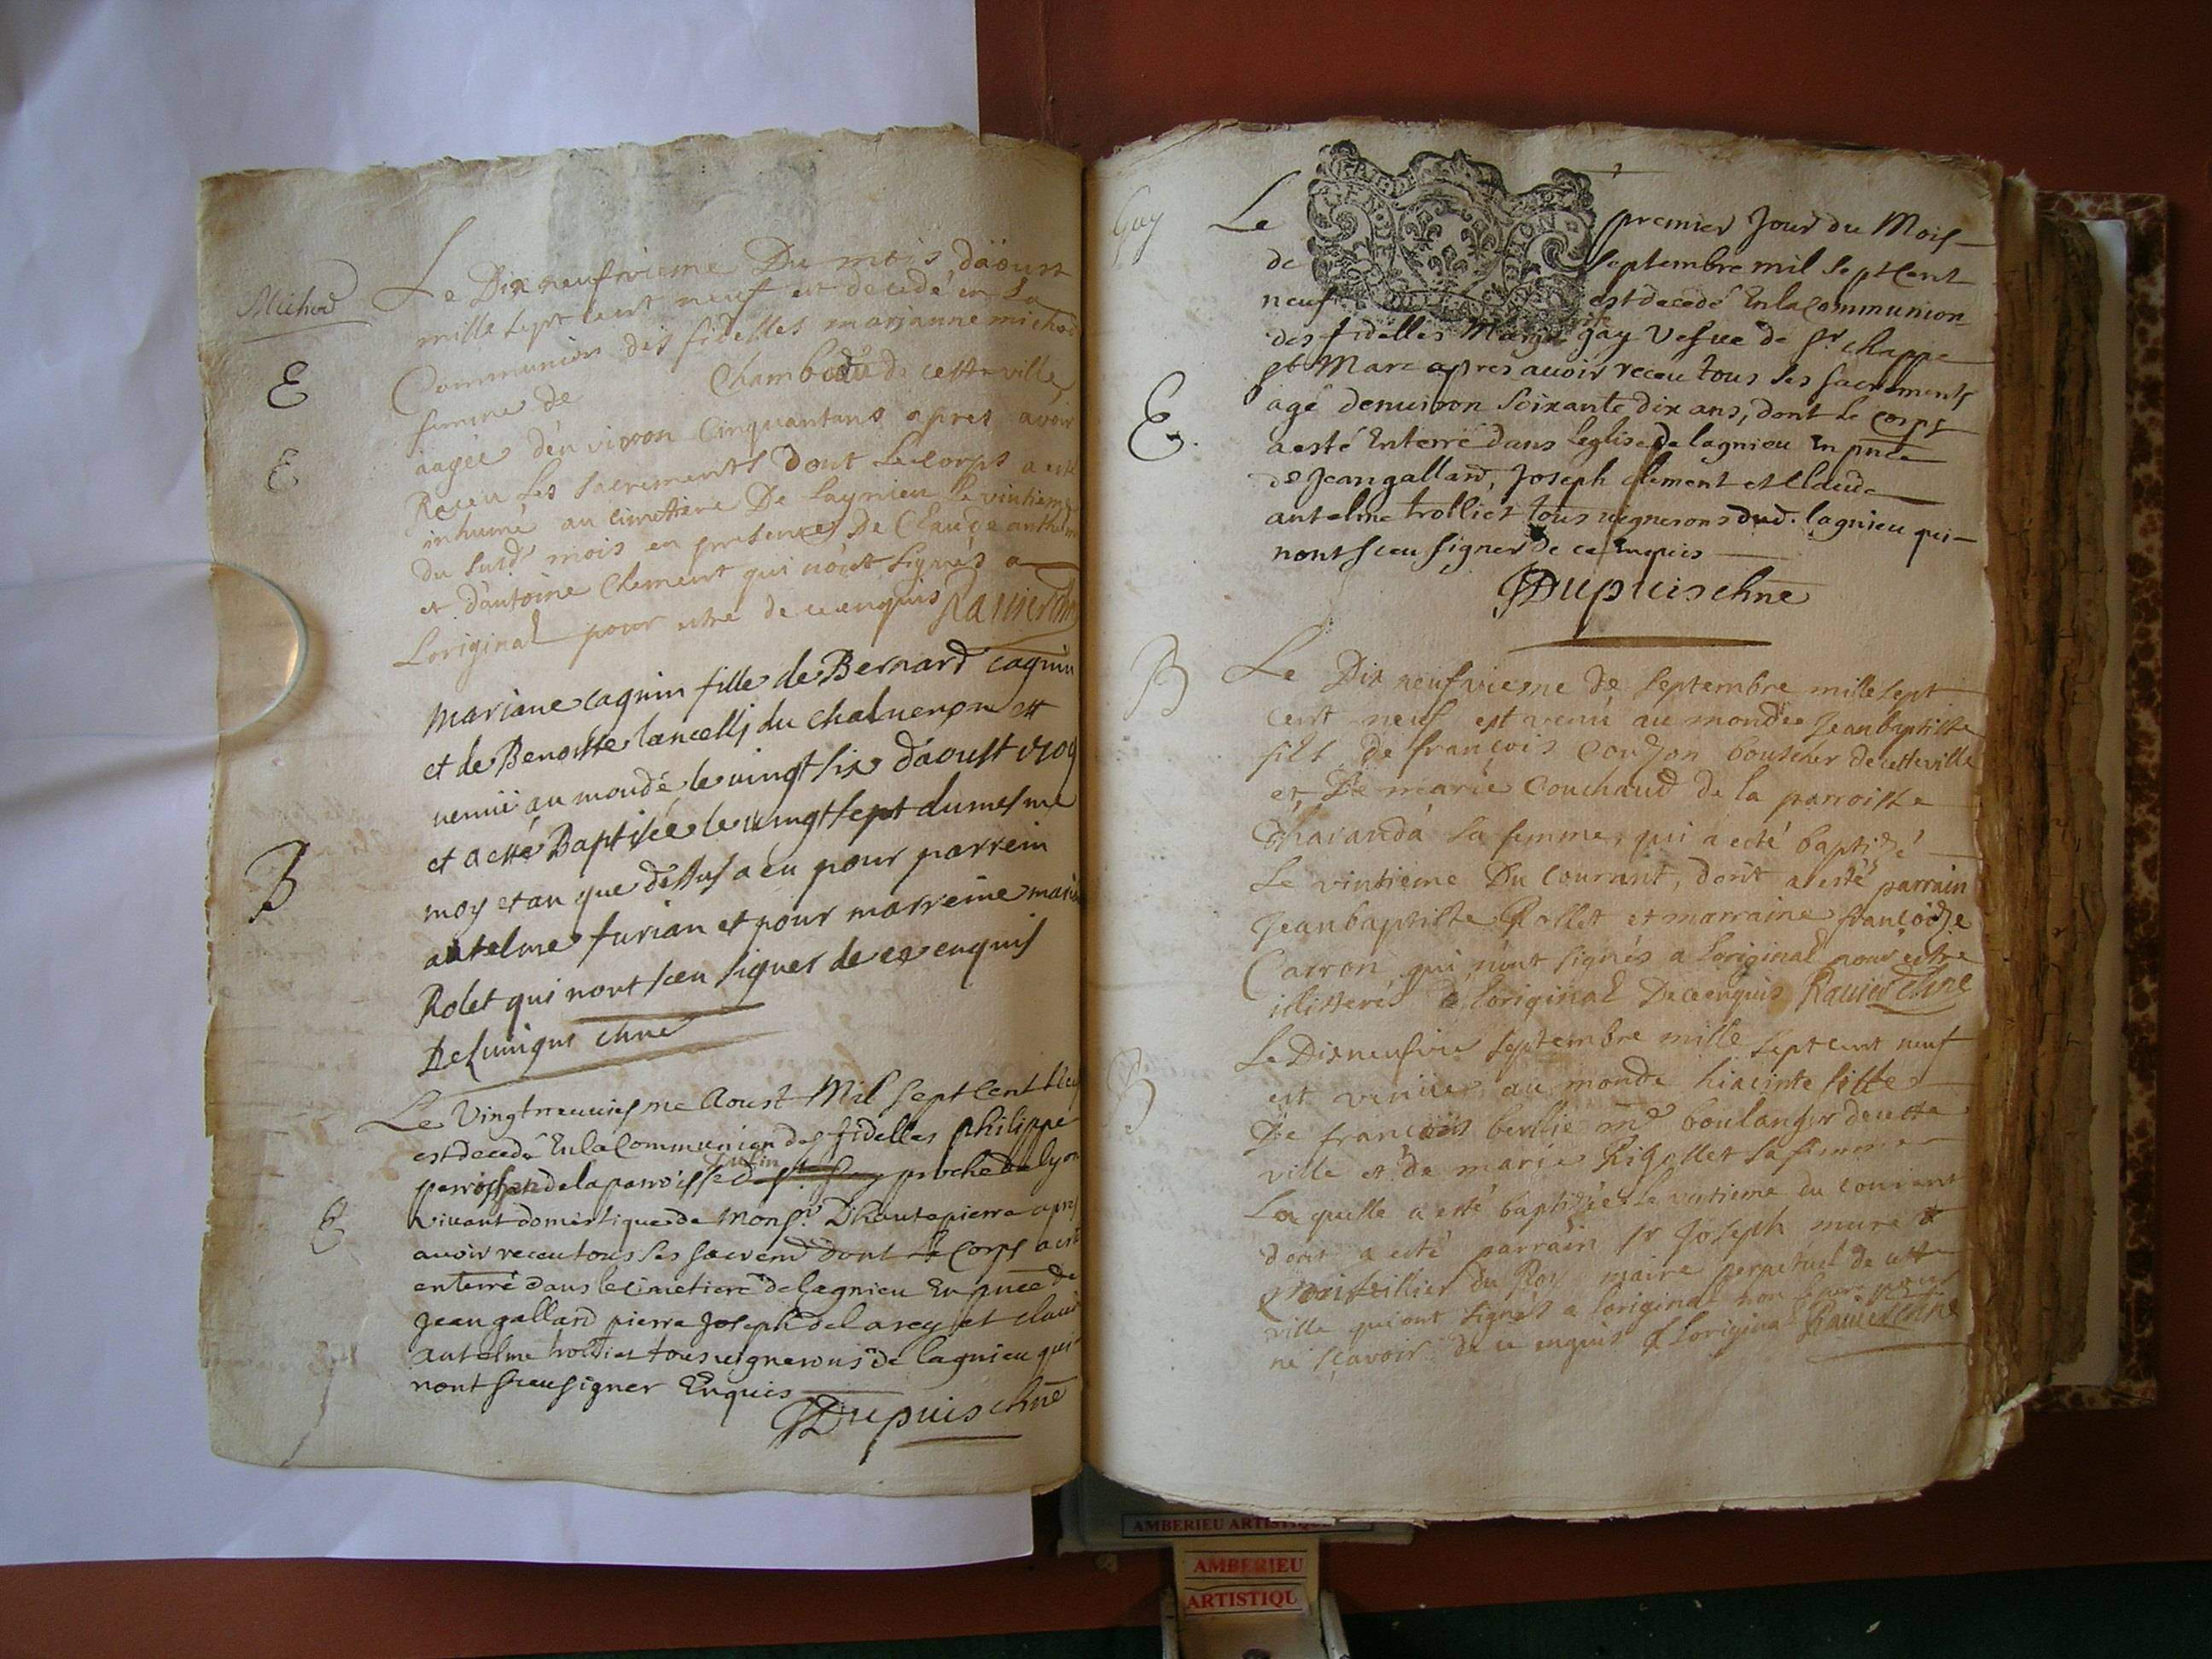 Michod
Le Dixneufvieme Du mois d'aoust
mille sept cent neuf est decedé en la
Communion des fidelles marianne michod
femme de Chambodu de cette ville
aagée d'environ Cinquantans apres avoir
Receu Les sacrements Dont Le Corps a esté
inhumé au cimettiere De Lagnieu le vintieme
du susd. mois en presences De Claude anthelme
et d'antoine Clement qui n'ont signés a
L'original pour estre de ce enquis Ravier chne
E
E
mariane caquin fille de Bernard caquin
et de Benoitte lancelly du chalneron est
venuë au monde le vingt six d'aoust 1709
et a esté Baptisée le vingt sept du mesme
moy et an que dessus a eu pour parrein
antelme furian et pour marreine marie
Rolet qui nont sceu signer de ce enquis
chne
B
Le Vingtneuviesme Aoust Mil Sept Cent neuf
est decedé En la Communion des fidelles philippe
de la parroisse de proche de lyon
vivant domestique de Monsr. D'hautepierre apres
avoir receu tous ses sacremd dont le Corps a esté
enterré dans le Cimetiere de lagnieu En pnce de
Jean gallard pierre Joseph delarey et claude
antelme trolliet tous vignerons de lagnieu qui
nont sceu signer Enquis
JDupuis chne
E
Gay
Le premier Jour du Mois
de Septembre mil Sept Cent
neuf est decedé En la Communion
des fidelles Margte gay Vefve de Sr. chappe
St Marc apres avoir receu tous les sacrements
agé denviron Soixante dix ans, dont le corps
a esté Enterré dans leglise de lagnieu En pnce
de Jean gallard, Joseph clement et Claude
antelme trolliet tous vignerons dud. lagnieu qui
nont sceu signer de ce Enquis
JDupuis chne
E.
B
Le Dixneufvieme de Septembre mille sept
cent neuf est venu au monde Jean baptiste
fils de françois Coudon boucher de cette ville
et De marie Couchaud de la parroisse
Dharanda sa femme, qui a esté baptizé
Le vintieme Du Courant, dont a esté parrain
Jean baptiste Rollet et marraine françoise
Carron qui n'ont signés a L'original pour estre
illitteres a L'original De ce enquis Ravier chne
B
Le Dixneufvie Septembre mille Sept cent neuf
est venüe au monde hiacinte fille
De françois berlie md boulanger de cette
ville et de marie Rigollet sa femme
La quelle a esté baptizée le vintieme du courant
dont a esté parrain Sr Joseph mure
Conseillier du Roy maire perpetuel de cette
ville qui ont signés a L'original non pour
ne sçavoir de ce enquis a L'original Ravier chne
AMBERIEU ARTISTIQUE
AMBERIEU
ARTISTIQU